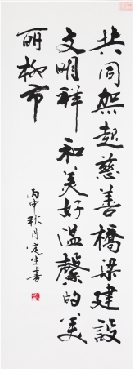 共同架起慈善橋梁建設
文明祥和美好温馨的美
丽城市
丙申秋月
書